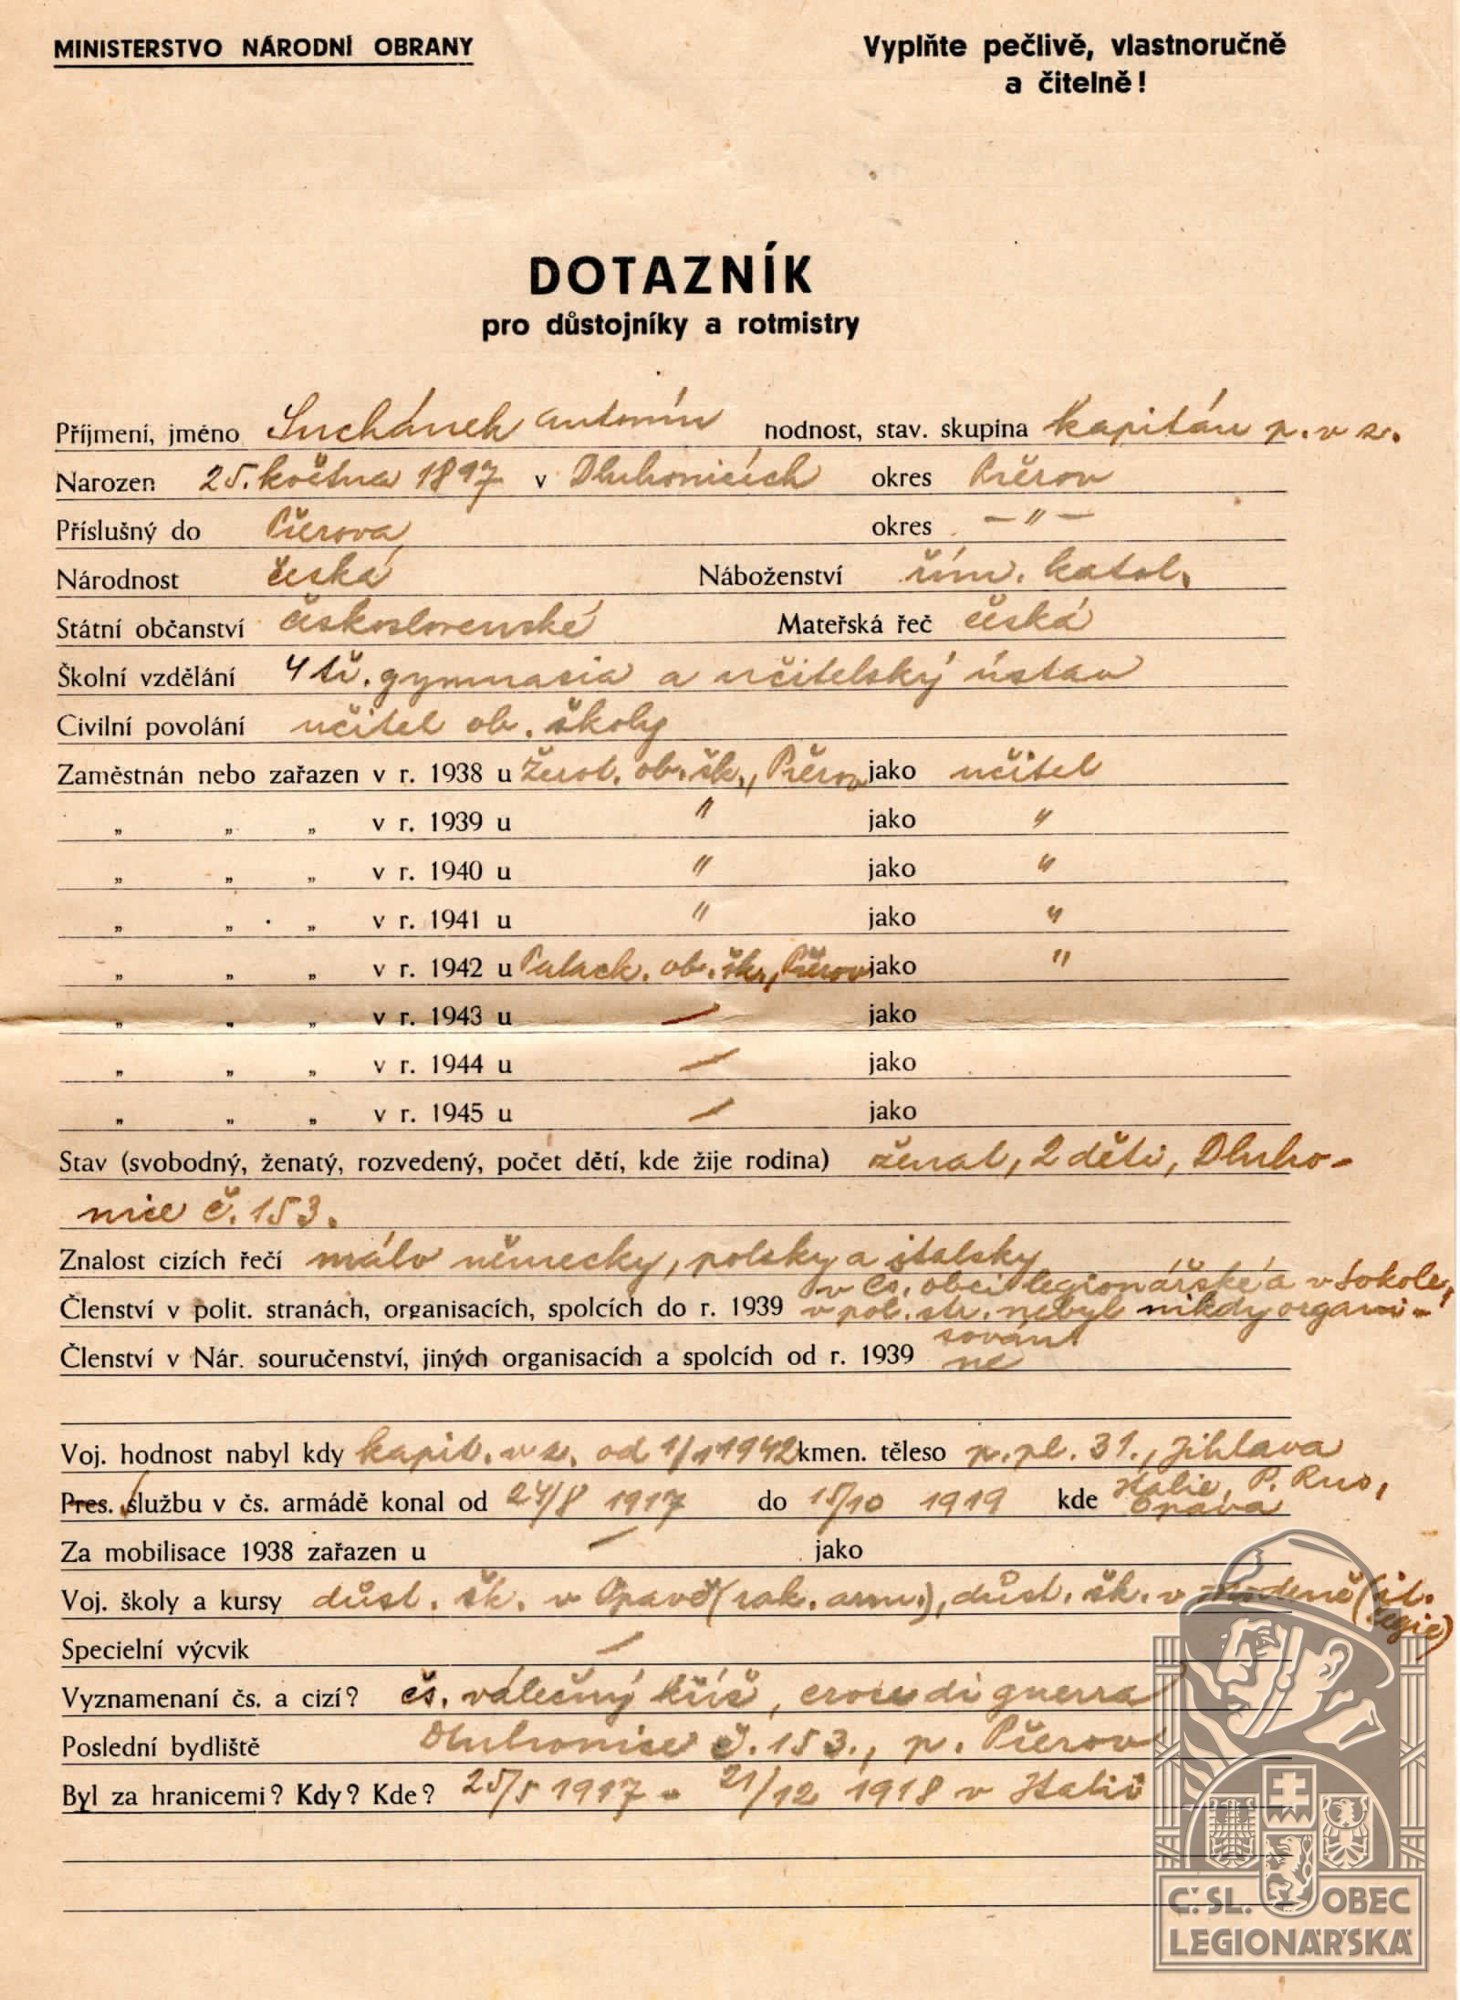 MINISTERSTVO NÁRODNÍ OBRANY
Vyplňte pečlivě, vlastnoručně
a čitelně!
DOTAZNÍK
pro důstojníky a rotmistry
Příjmení, jméno Suchánek Antonín hodnost, stav. skupina kapitán p. v z.
Narozen 25. května 1897 v Dluhonicích okres Přerov
Příslušný do Přerova okres — " —
Národnost česká Náboženství řím. katol.
Státní občanství československé Mateřská řeč česká
Školní vzdělání 4 tř. gymnasia a učitelský ústav
Civilní povolání učitel ob. školy
Zaměstnán nebo zařazen v r. 1938 u Žerot. ob. šk., Přerov jako učitel
„ „ „ v r. 1939 u " jako "
„ „ „ v r. 1940 u " jako "
„ „ „ v r. 1941 u " jako "
„ „ „ v r. 1942 u Palack. ob. šk., Přerov jako "
„ „ „ v r. 1943 u — jako
„ „ „ v r. 1944 u — jako
„ „ „ v r. 1945 u — jako
Stav (svobodný, ženatý, rozvedený, počet dětí, kde žije rodina) ženat, 2 děti, Dluho-
nice č. 153.
Znalost cizích řečí málo německy, polsky a italsky
v čs. obci legionářské a v Sokole,
Členství v polit. stranách, organisacích, spolcích do r. 1939 v pol. str. nebyl nikdy organi-
sován
Členství v Nár. souručenství, jiných organisacích a spolcích od r. 1939 ne
Voj. hodnost nabyl kdy kapit. v z. od 1/1 1942 kmen. těleso p. pl. 31., Jihlava
Pres. službu v čs. armádě konal od 24/8 1917 do 15/10 1919 kde Italie, P. Rus,
Opava
Za mobilisace 1938 zařazen u — jako
Voj. školy a kursy důst. šk. v Opavě (rak. arm.), důst. šk. v Modeně (it.
legie)
Specielní výcvik —
Vyznamenaní čs. a cizí? čs. válečný kříž, croce di guerra
Poslední bydliště Dluhonice č. 153., p. Přerov
Byl za hranicemi? Kdy? Kde? 25/5 1917 - 21/12 1918 v Italii
Č. SL. OBEC
LEGIONÁŘSKÁ